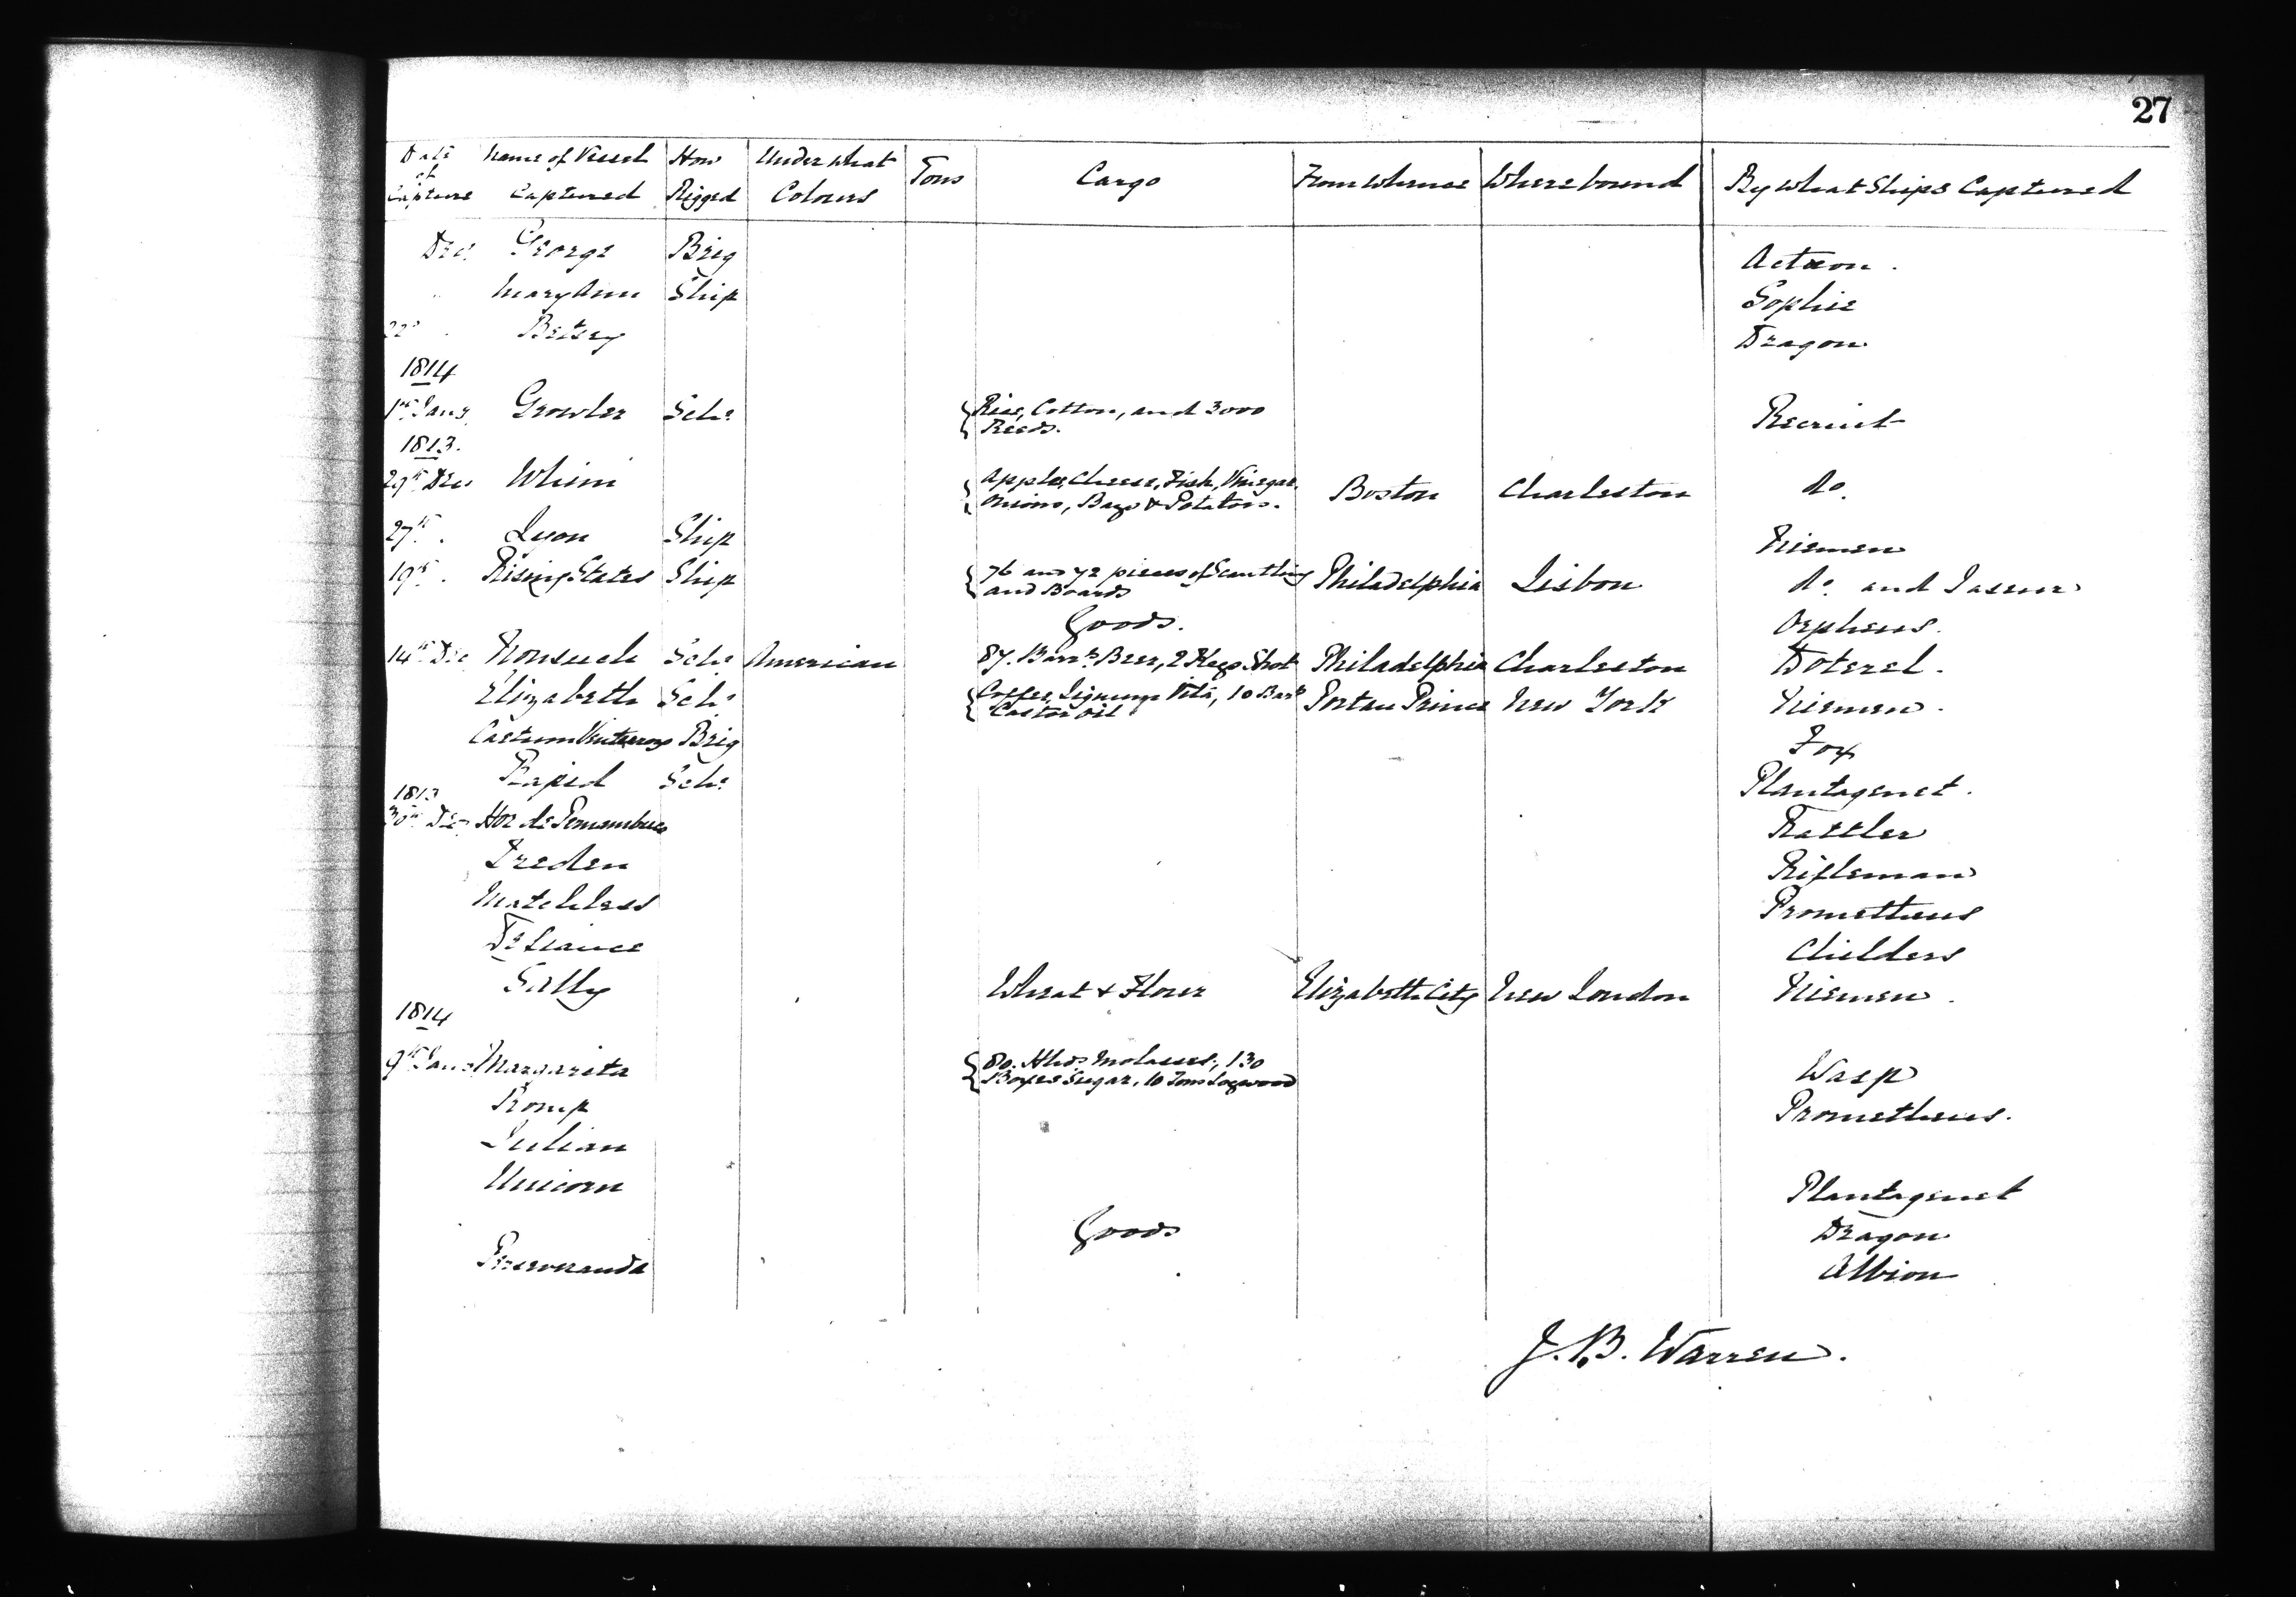 27
Date of Capture Name of Vessel Captured How Rigged Under what Colours Tons Cargo From Whence Where bound By What Ships Captured
Decr George Brig Actæon.
" Mary Ann Ship Sophie
22d " Betsey Dragon
1814
1st Jany Growler Schr {Rice, Cotton, and 3000 Reeds. Recruit
1813.
29th Decr Whim {Apples, Cheese, Fish, Vinegar, Onions, Bags & Potatoes. Boston Charleston Do.
27th " Lyon Ship Niemen
19th " Rising States Ship {76 and 72 pieces of Scantling and Boards Philadelphia Lisbon Do. and Jaseur
Goods. Orpheus.
14th Dec Nonsuch Schr American 87. Barrls Beer, 2 Kegs Shot Philadelphia Charleston Doterel.
Elizabeth Schr {Coffee, Lignum Vitæ, 10 Barls Castor Oil Port au Prince New York Niemen.
Brig Fox
Rapid Schr Plantagenet.
1813
30th Dec de Pernambuco Rattler
Freden Rifleman
Matchless Prometheus
Defiance Childers
Sally Wheat & Flour Elizabeth City New London Niemen.
1814
9th Jany Margarita {80. Hhds. Molasses, 130 Boxes Sugar, 10 Tons Logwood Wasp
Romp Prometheus.
Julian
Unicorn Plantagenet
Goods Dragon
Perseveranda Albion
J. B. Warren.